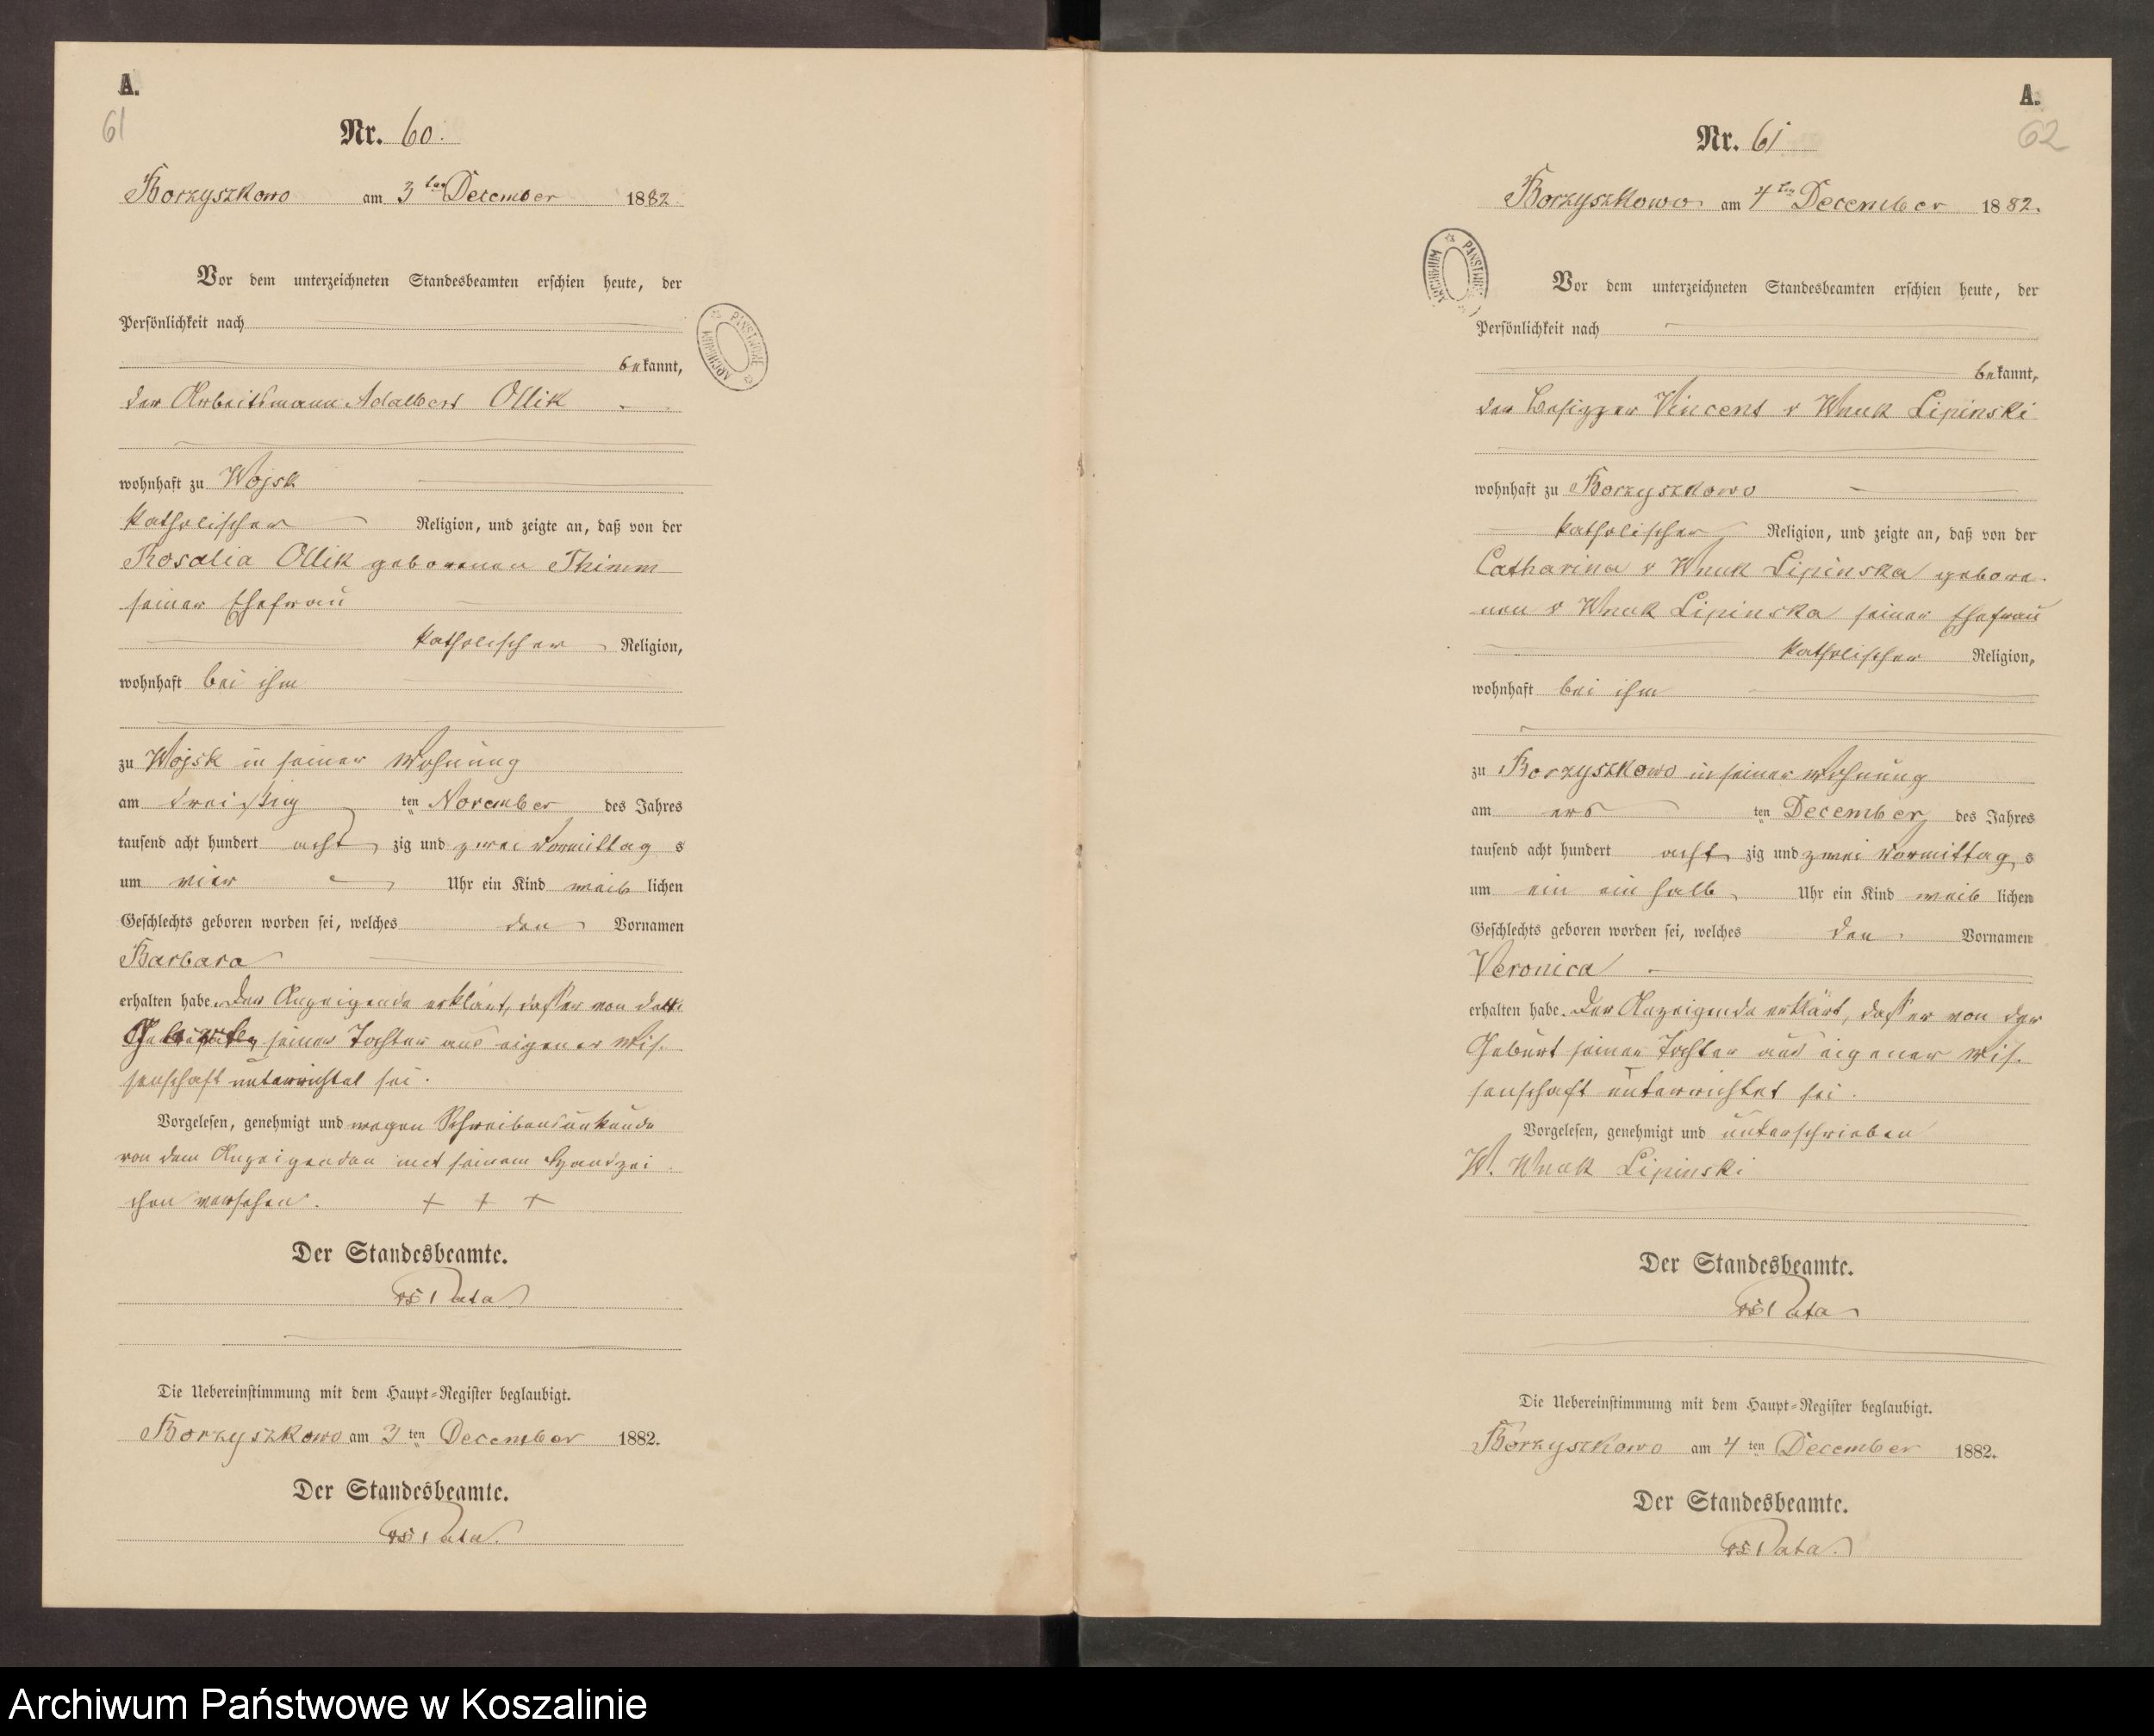 A.
61
Nr. 60.
Borzyszkowo am 3ten December 1882.
Vor dem unterzeichneten Standesbeamten erschien heute, der
Persönlichkeit nach
bekannt,
der Arbeitsmann Adalbert Ollik
wohnhaft zu Wojsk
katholischer Religion, und zeigte an, daß von der
Rosalia Ollik geborenen Thimm
seiner Ehefrau
katholischer Religion,
wohnhaft bei ihm
zu Wojsk in seiner Wohnung
am dreißig ten November des Jahres
tausend acht hundert acht zig und zwei Vormittag s
um vier Uhr ein Kind weib lichen
Geschlechts geboren worden sei, welches den Vornamen
Barbara
erhalten habe. Der Anzeigende erklärt, daß er von der
Geburt seiner Tochter aus eigener Wis-
senschaft unterrichtet sei.
Vorgelesen, genehmigt und wegen Schreibensunkunde
von dem Anzeigenden mit seinem Handzei
chen versehen. + + +
Der Standesbeamte.
Pata
Die Uebereinstimmung mit dem Haupt-Register beglaubigt.
Borzyszkowo am 3 ten December 1882.
Der Standesbeamte.
Pata.
ARCHIWUM PAŃSTWOWE
A.
62
Nr. 61
Borzyszkowo am 4ten December 1882.
Vor dem unterzeichneten Standesbeamten erschien heute, der
Persönlichkeit nach
bekannt,
der Besizzer Vincent v Wnuk Lipinski
wohnhaft zu Borzyszkowo
katholischer Religion, und zeigte an, daß von der
Catharina v Wnuk Lipinska gebore-
nen v Wnuk Lipinska seiner Ehefrau
katholischer Religion,
wohnhaft bei ihm
zu Borzyszkowo in seiner Wohnung
am ers ten December des Jahres
tausend acht hundert acht zig und zwei Vormittag s
um ein ein halb Uhr ein Kind weib lichen
Geschlechts geboren worden sei, welches den Vornamen
Veronica
erhalten habe. Der Anzeigende erklärt, daß er von der
Geburt seiner Tochter aus eigener Wis-
senschaft unterrichtet sei.
Vorgelesen, genehmigt und unterschrieben
W. Wnuk Lipinski
Der Standesbeamte.
Pata
Die Uebereinstimmung mit dem Haupt-Register beglaubigt.
Borzyszkowo am 4 ten December 1882.
Der Standesbeamte.
Pata.
ARCHIWUM
Archiwum Państwowe w Koszalinie